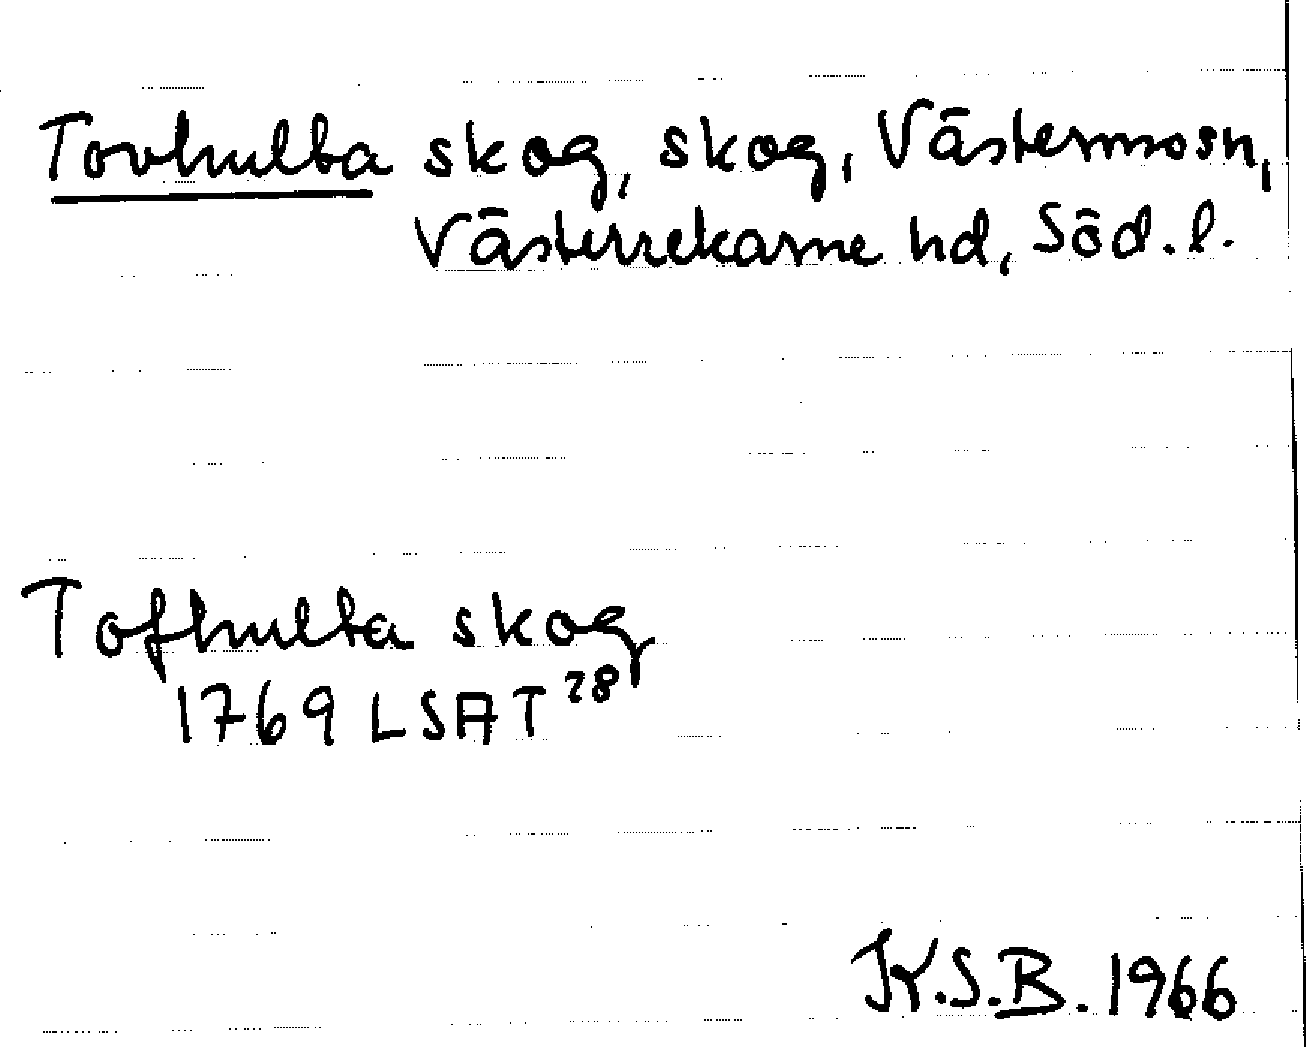 Tovhulta skog, skog, Västermo sn,
Västerrekarne hd, Söd. l.
Tofhulta skog
1769 LSA T²⁸
K.S.B. 1966